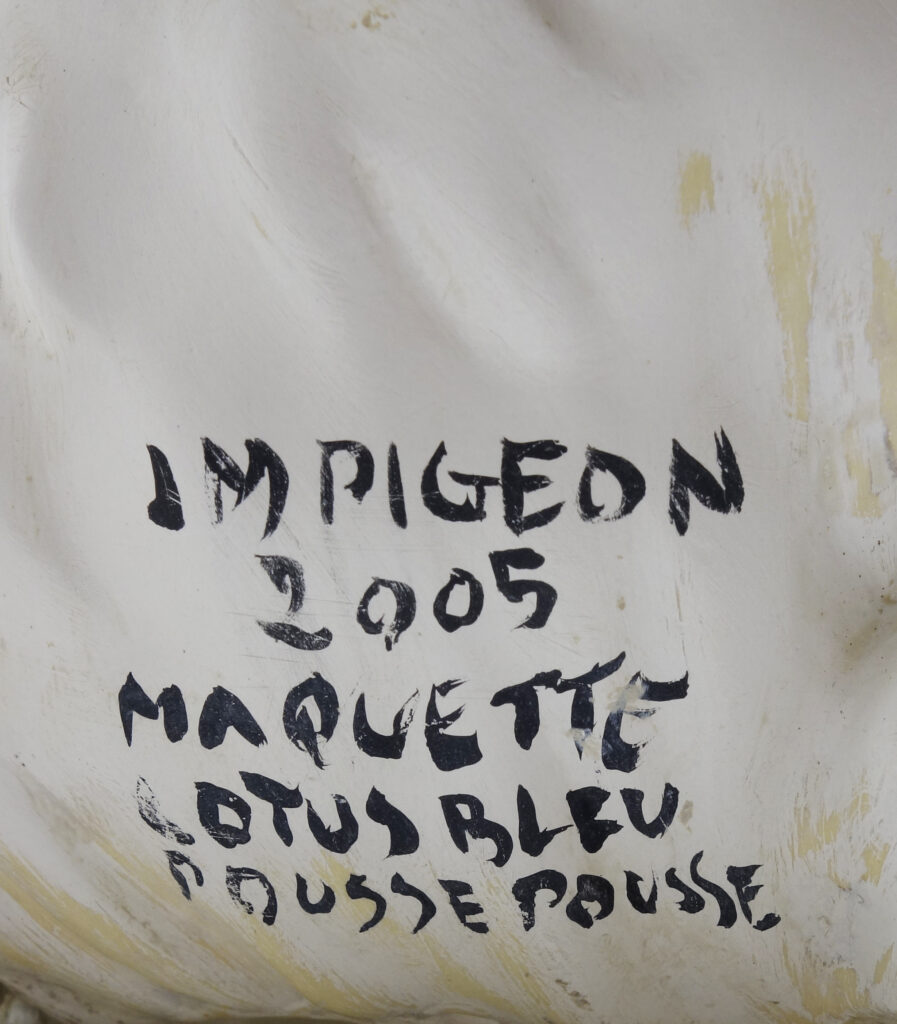 JM PIGEON
2005
MAQUETTE
LOTUS BLEU
POUSSE POUSSE